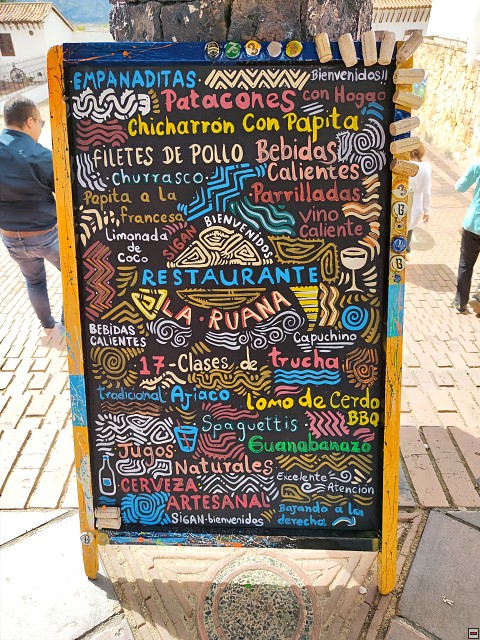 EMPANADITAS
Bienvenidos!!
Patacones con Hogao
Chicharrón Con Papita
FILETES DE POLLO
Bebidas Calientes
Churrasco
Parrilladas
Papita a la francesa
Vino Caliente
Limonada de Coco
SIGAN
BIENVENIDOS
RESTAURANTE
LA·RUANA
BEBIDAS CALIENTES
Capuchino
17-Clases de trucha
tradicional Ajiaco
Lomo de Cerdo BBQ
Spaguettis
Guanabanazo
Jugos Naturales
Excelente Atención
CERVEZA ARTESANAL
SIGAN-bienvenidos
Bajando a la derecha